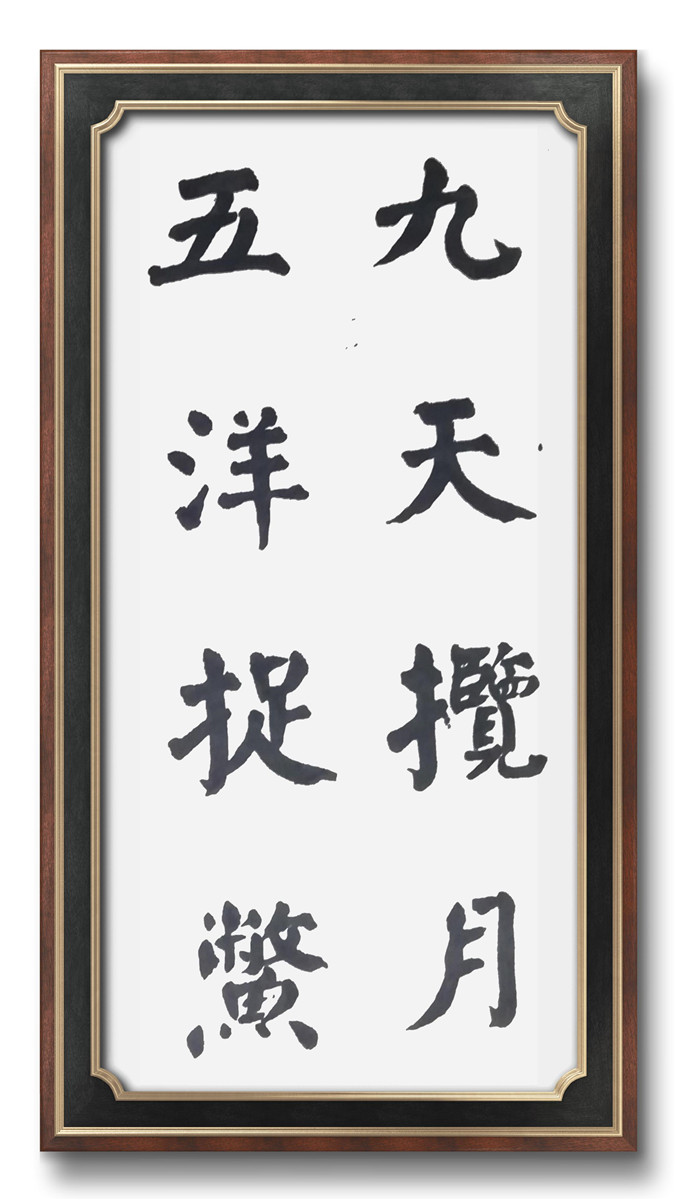 九天攬月
五洋捉鱉